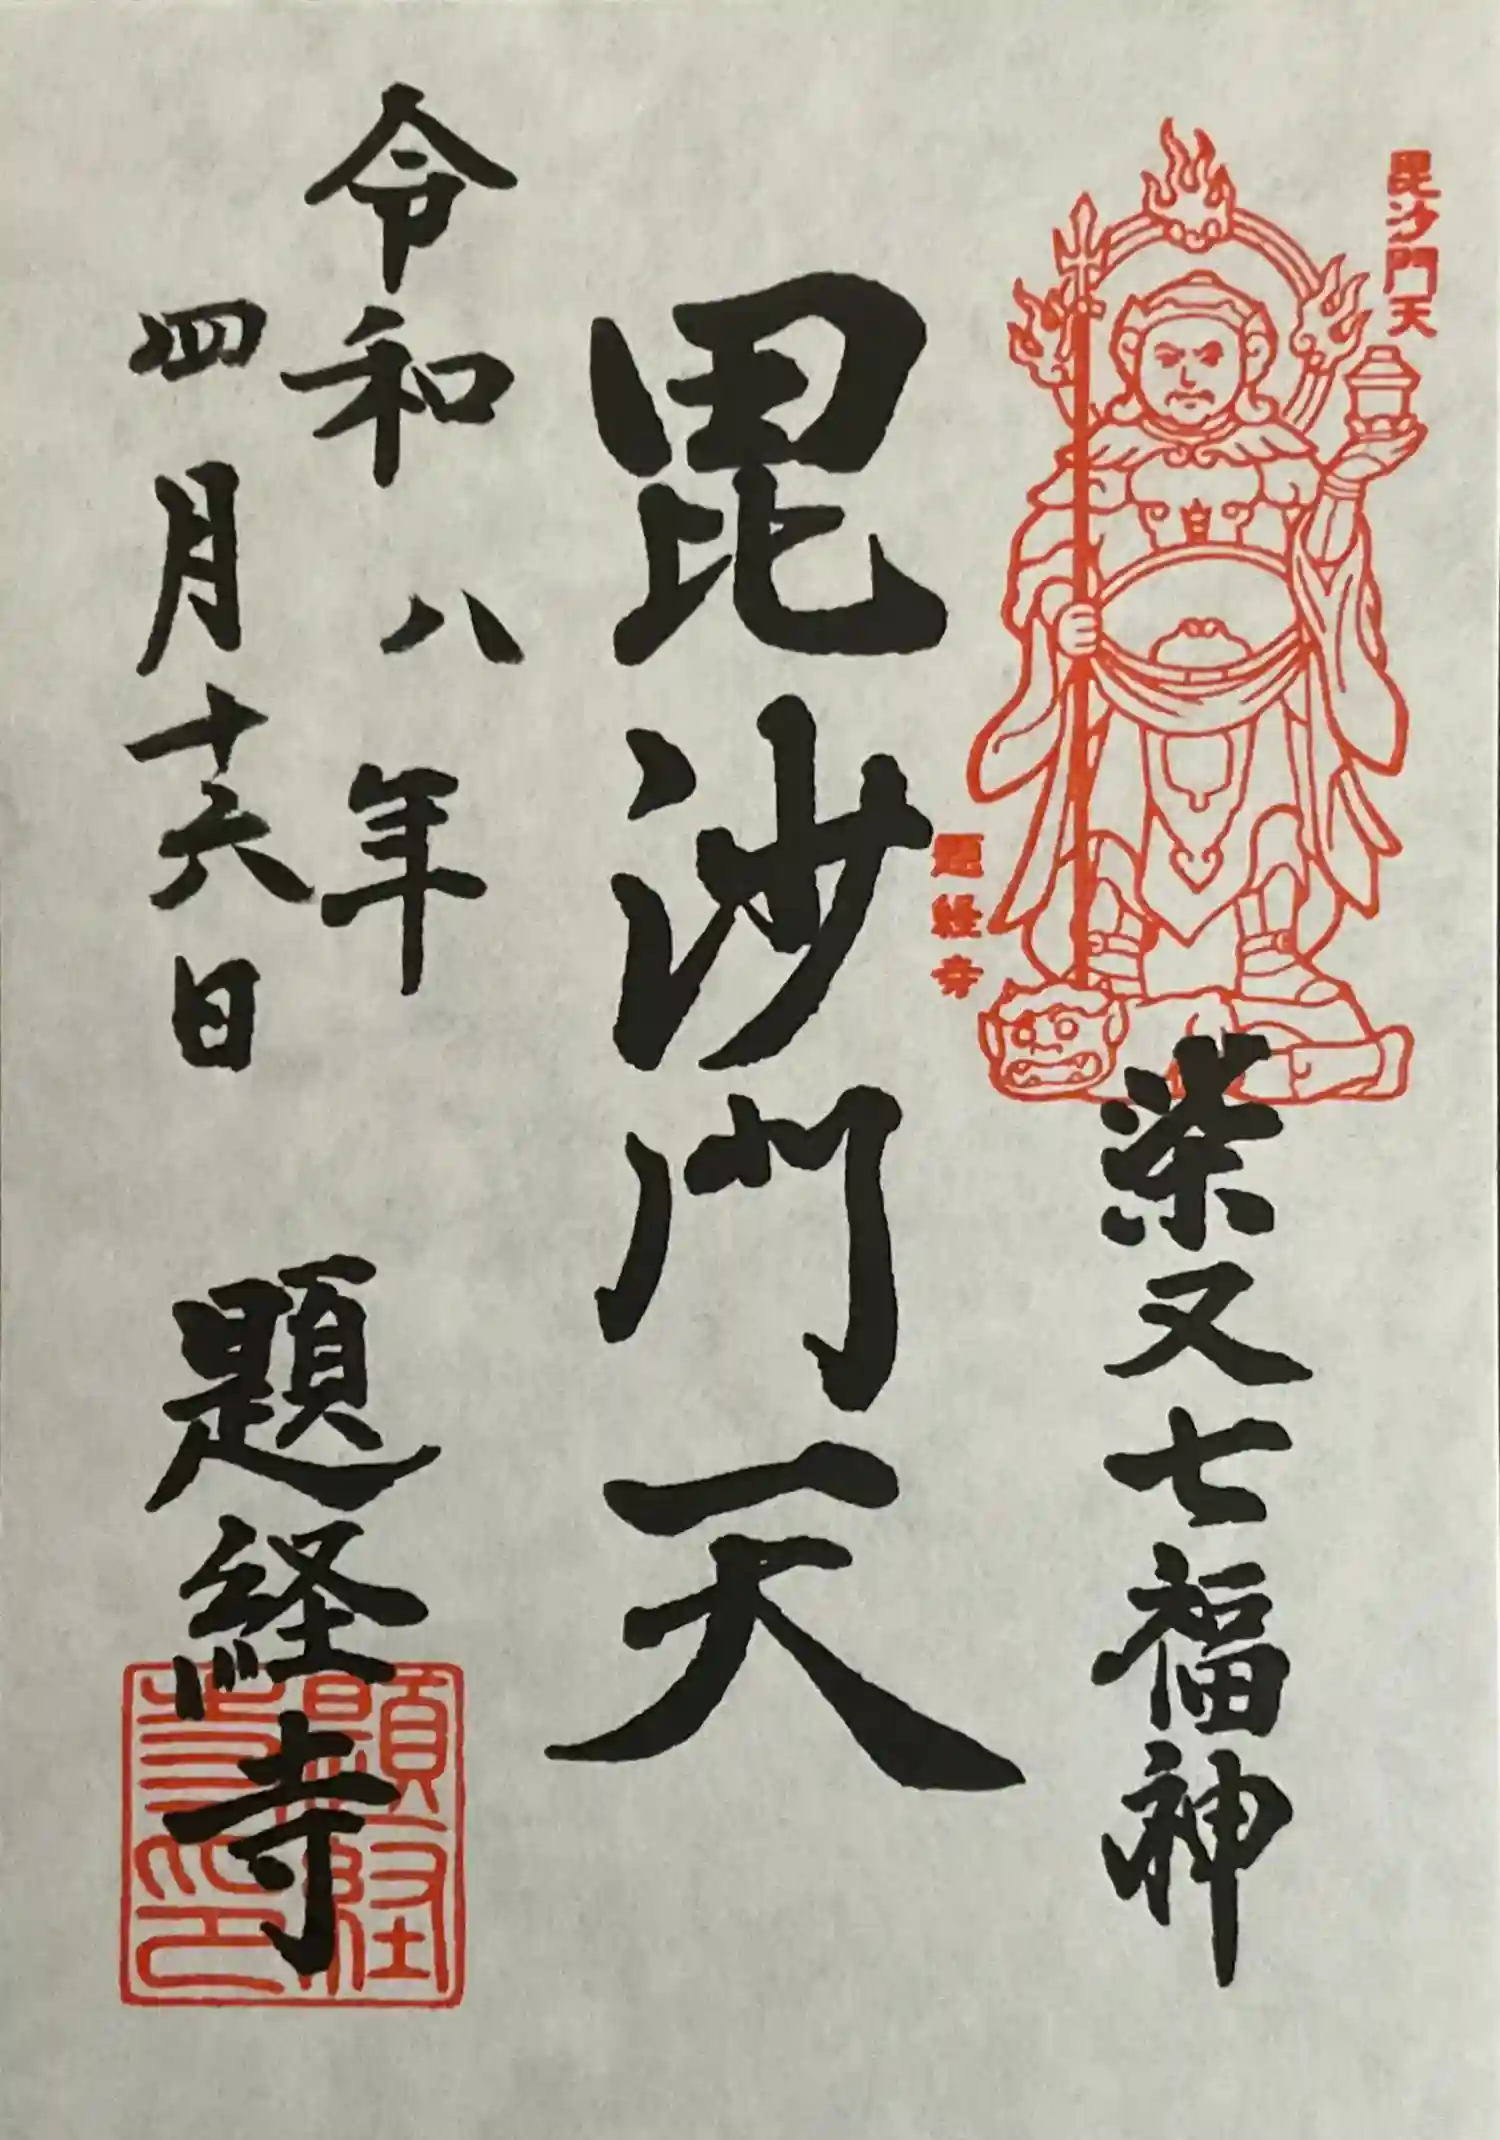 毘沙門天
柴又七福神
題経寺
毘沙門天
令和八年
四月十六日
題経寺
題経寺印